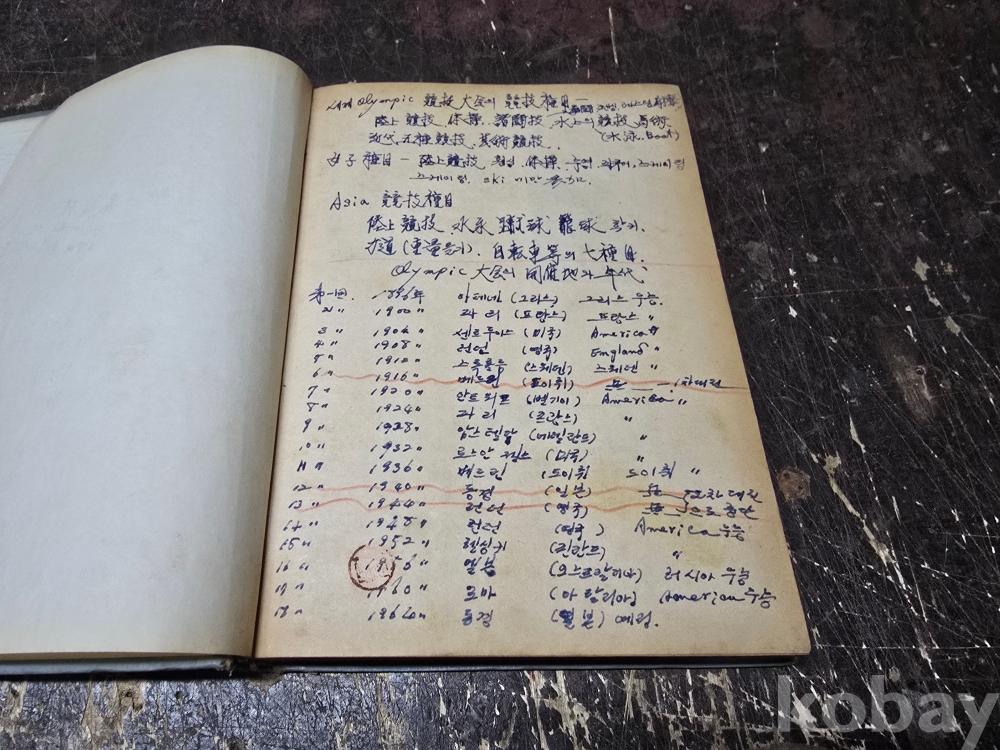 Olympic 競技大会의 競技種目 —
陸上競技, 体操, 水上의 競技, 馬術
近代五種競技, 芸術競技. (水泳. Boat)
女子種目 — 陸上競技, 体操, 수영,
스케이팅, ski 에만 参加.
Asia 競技種目
陸上競技, 水泳 蹴球 籠球
(重量들기), 自転車等의 七種目.
Olympic 大会의 開催地와 年代
第一回. 1896年 아테네 (그리스) 그리스 우승.
2〃 1900〃 파리 (프랑스) 프랑스 〃
3〃 1904〃 센트루이스 (미국) America 〃
4〃 1908〃 런던 (영국) England 〃
5〃 1912〃 스톡홀름 (스웨덴) 스웨덴 〃
6〃 1916〃 베르린 (도이취)
7〃 1920〃 안트워프 (벨기이) America 〃
8〃 1924〃 파리 (프랑스) 〃
9〃 1928〃 암스텔담 (네델란드) 〃
10〃 1932〃 로스안젤스 (미국) 〃
11〃 1936〃 베르린 (도이취) 도이취 〃
12〃 1940〃 동경 (일본)
13〃 1944〃 런던 (영국)
14〃 1948〃 런던 (영국) America 우승
15〃 1952〃 헬싱키 (핀란드) 〃
16〃 멜본 (오스트랄리아) 러시아 우승
17〃 1960〃 로마 (이탈리아) American 우승
18〃 1964〃 동경 (일본) 예정.
kobay